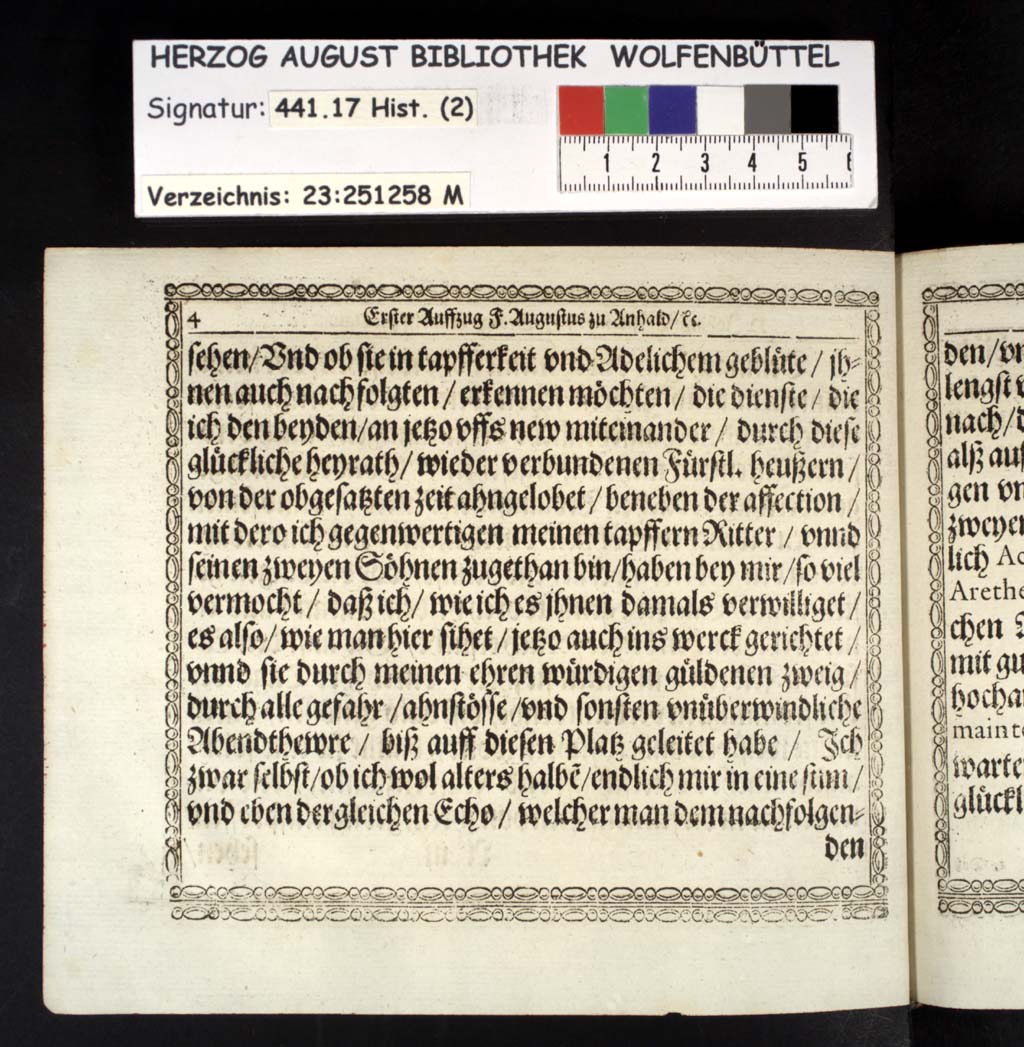 HERZOG AUGUST BIBLIOTHEK WOLFENBÜTTEL
Signatur: 441.17 Hist. (2)
1 2 3 4 5 6
Verzeichnis: 23:251258 M
4 Erster Auffzug F. Augustus zu Anhald/ ꝛc.
sehen/Vnd ob sie in tapfferkeit vnd Adelichem geblüte / jh-
nen auch nachfolgten / erkennen möchten / die dienste / die
ich den beyden/an jetzo vffs new miteinander / durch diese
glückliche heyrath/ wieder verbundenen Fürstl. heußern /
von der obgesatzten zeit ahngelobet / beneben der affection /
mit dero ich gegenwertigen meinen tapffern Ritter / vnnd
seinen zweyen Söhnen zugethan bin/haben bey mir/so viel
vermocht / daß ich/ wie ich es jhnen damals verwilliget /
es also/ wie man hier sihet / jetzo auch ins werck gerichtet /
vnnd sie durch meinen ehren würdigen güldenen zweig /
durch alle gefahr /ahnstösse /vnd sonsten vnüberwindliche
Abendthewre / biß auff diesen Platz geleitet habe / Ich
zwar selbst/ob ich wol alters halbẽ/endlich mir in eine stim/
vnd eben dergleichen Echo / welcher man dem nachfolgen-
den
den/vn
lengst
nach/d
alß auf
gen vn
zweyen
lich Ac
Arethe
chen
mit gu
hocha
mainte
warte
glückl